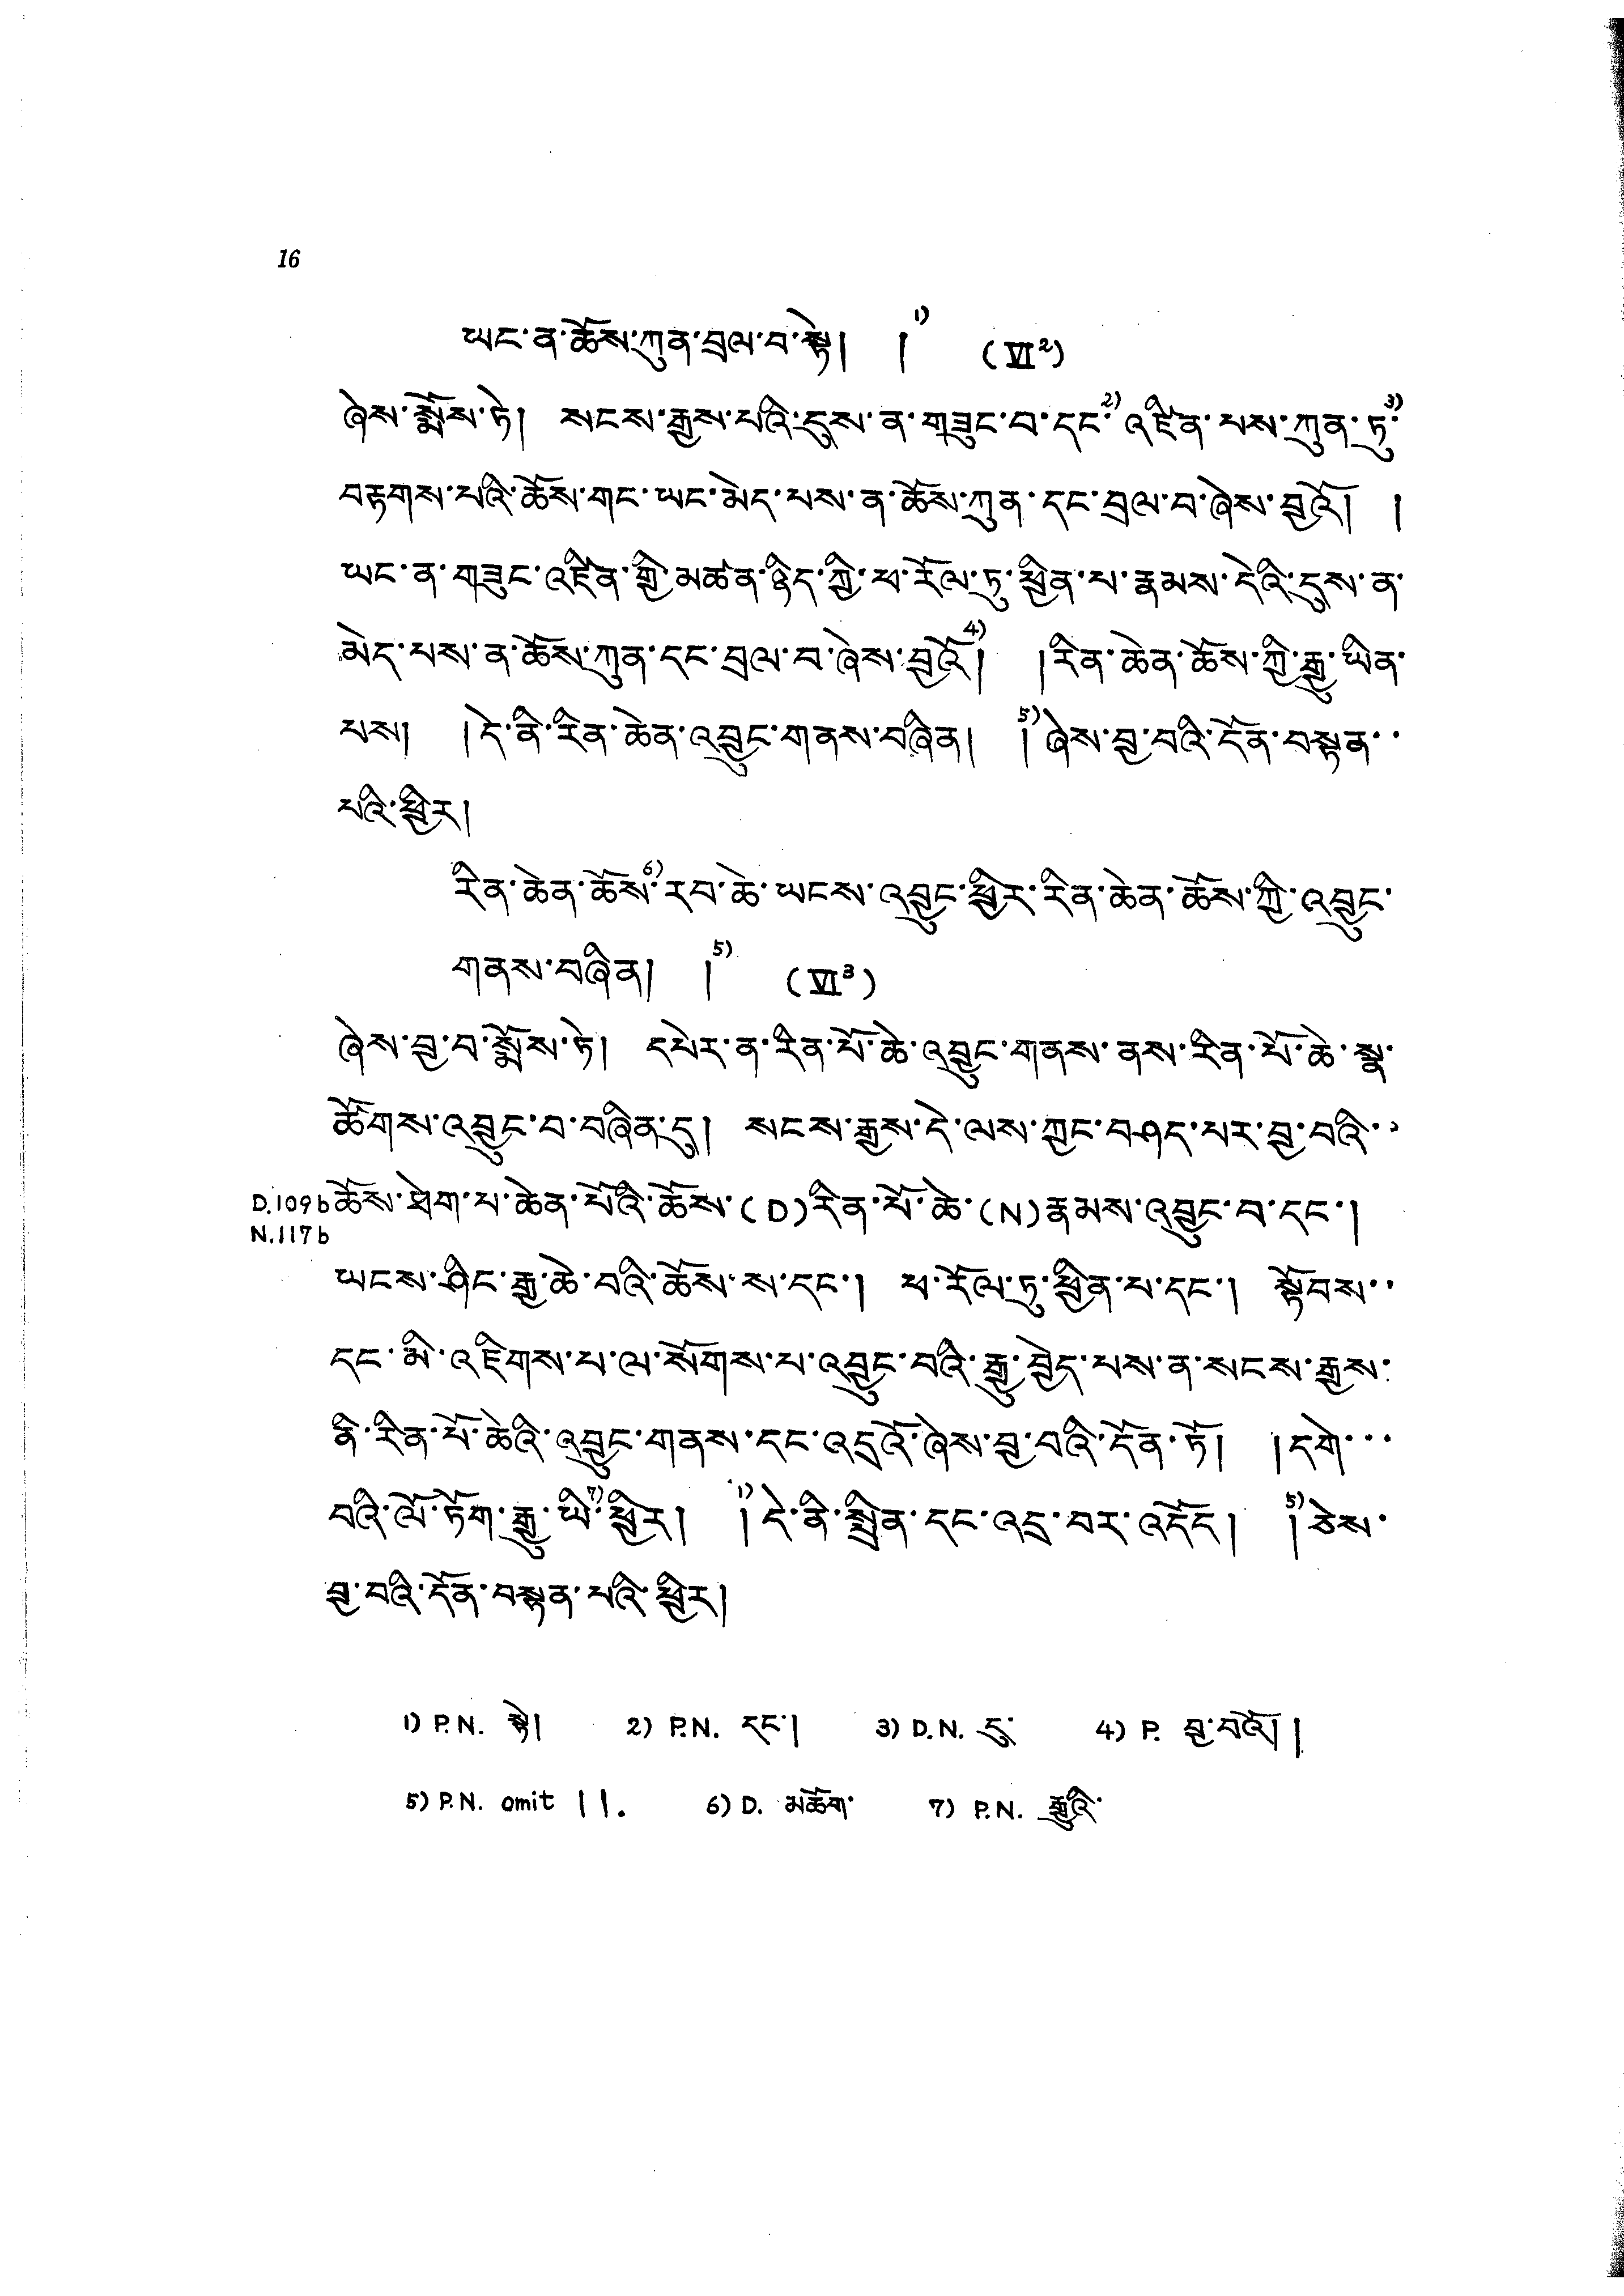 16
ཡང་ན་ཆོས་ཀུན་བྲལ་བ་སྟེ། །1) (VI2)
ཞེས་སྨོས་ཏེ། སངས་རྒྱས་པའི་དུས་ན་གཟུང་བ་དང་2)འཛིན་པས་ཀུན་ཏུ་3)
བརྟགས་པའི་ཆོས་གང་ཡང་མེད་པས་ན་ཆོས་ཀུན་དང་བྲལ་བ་ཞེས་བྱའོ། །
ཡང་ན་གཟུང་འཛིན་གྱི་མཚན་ཉིད་ཀྱི་ཕ་རོལ་ཏུ་ཕྱིན་པ་རྣམས་དེའི་དུས་ན་
མེད་པས་ན་ཆོས་ཀུན་དང་བྲལ་བ་ཞེས་བྱའོ4)། །རིན་ཆེན་ཆོས་ཀྱི་རྒྱུ་ཡིན་
པས། །དེ་ནི་རིན་ཆེན་འབྱུང་གནས་བཞིན། །5)ཞེས་བྱ་བའི་དོན་བསྟན་་
པའི་ཕྱིར།
རིན་ཆེན་ཆོས་6)རབ་ཆེ་ཡངས་འབྱུང་ཕྱིར་རིན་ཆེན་ཆོས་ཀྱི་འབྱུང་
གནས་བཞིན། །5) (VI3)
ཞེས་བྱ་བ་སྨོས་ཏེ། དཔེར་ན་རིན་པོ་ཆེ་འབྱུང་གནས་ནས་རིན་པོ་ཆེ་སྣ་
ཚོགས་འབྱུང་བ་བཞིན་དུ། སངས་རྒྱས་དེ་ལས་ཀྱང་བཤད་པར་བྱ་བའི་་
D.109b ཆོས་ཐེག་པ་ཆེན་པོའི་ཆོས་(D)རིན་པོ་ཆེ་(N)རྣམས་འབྱུང་བ་དང་།
N.117b
ཡངས་ཤིང་རྒྱ་ཆེ་བའི་ཆོས་ས་དང་། ཕ་རོལ་ཏུ་ཕྱིན་པ་དང་། སྟོབས་་
དང་མི་འཇིགས་པ་ལ་སོགས་པ་འབྱུང་བའི་རྒྱུ་བྱེད་པས་ན་སངས་རྒྱས་
ནི་རིན་པོ་ཆེའི་འབྱུང་གནས་དང་འདྲའོ་ཞེས་བྱ་བའི་དོན་ཏོ། །དགེ་་་
བའི་ལོ་ཏོག་རྒྱུ་ཡི་7)ཕྱིར། །1)དེ་ནི་སྤྲིན་དང་འདྲ་བར་འདོད། །5)ཅེས་
བྱ་བའི་དོན་བསྟན་པའི་ཕྱིར།
1) P.N. སྟེ། 2) P.N. དང་། 3) D.N. དུ་ 4) P. བྱ་བའོ། །
5) P.N. omit །།. 6) D. མཆོག་ 7) P.N. རྒྱུའི་